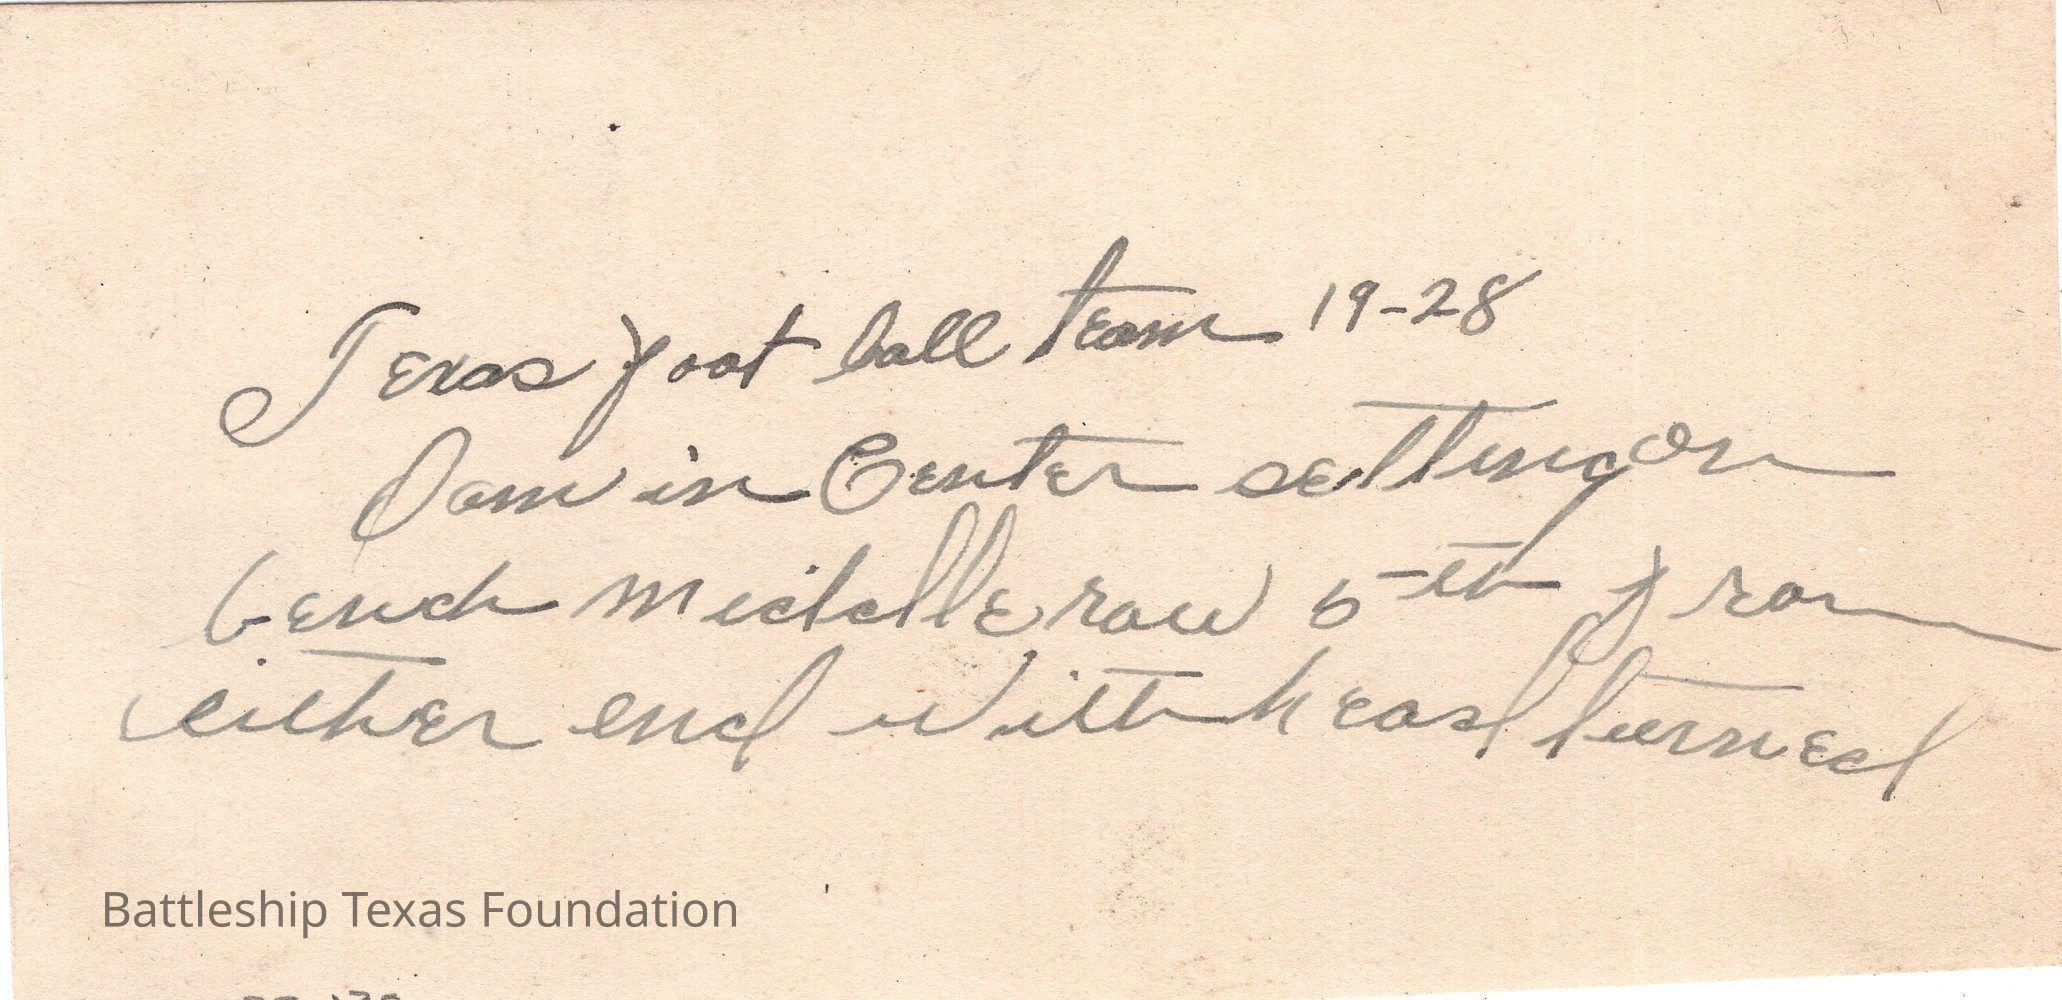 Texas foot ball team 19-28
I am in Center setting on
bench middle row 5th from
either end with head turned
Battleship Texas Foundation